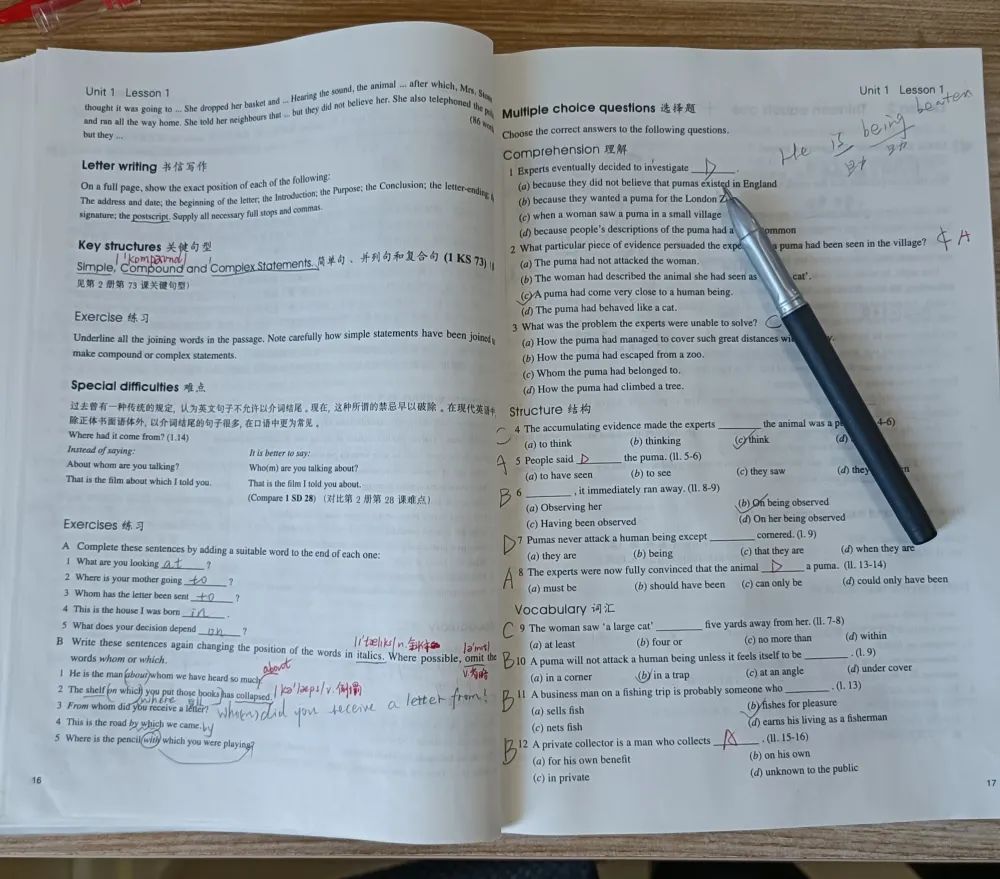 Unit 1 Lesson 1
thought it was going to ... She dropped her basket and ... Hearing the sound, the animal ... after which, Mrs,
and ran all the way home. She told her neighbours that ... but they did not believe her. She also telephoned the
but they ...
(86
Letter writing 书信写作
On a full page, show the exact position of each of the following:
The address and date; the beginning of the letter; the Introduction; the Purpose; the Conclusion; the letter-ending;
signature; the postscript. Supply all necessary full stops and commas.
Key structures 关键句型
Simple, Compound and Complex Statements. 简单句、并列句和复合句 (1 KS 73)
见第 2 册第 73 课关键句型)
Exercise 练习
Underline all the joining words in the passage. Note carefully how simple statements have been joined
make compound or complex statements.
Special difficulties 难点
过去曾有一种传统的规定, 认为英文句子不允许以介词结尾。现在, 这种所谓的禁忌早以破除。在现代英语中
除正体书面语体外, 以介词结尾的句子很多, 在口语中更为常见。
Where had it come from? (1.14)
Instead of saying: It is better to say:
About whom are you talking? Who(m) are you talking about?
That is the film about which I told you. That is the film I told you about.
(Compare 1 SD 28) (对比第 2 册第 28 课难点)
Exercises 练习
A Complete these sentences by adding a suitable word to the end of each one:
1 What are you looking at ?
2 Where is your mother going to ?
3 Whom has the letter been sent to ?
4 This is the house I was born in .
5 What does your decision depend on ?
B Write these sentences again changing the position of the words in italics. Where possible, omit the
words whom or which.
about
1 He is the man about whom we have heard so much.
2 The shelf on which you put those books has collapsed. /kə'læps/ v. 倒塌
where
3 From whom did you receive a letter? who(m) did you receive a letter from?
4 This is the road by which we came. by
5 Where is the pencil with which you were playing?
16
Unit 1 Lesson 1
Multiple choice questions 选择题
He is being beaten
助 助
Choose the correct answers to the following questions.
Comprehension 理解
1 Experts eventually decided to investigate D .
(a) because they did not believe that pumas existed in England
(b) because they wanted a puma for the London
(c) when a woman saw a puma in a small village
(d) because people's descriptions of the puma had common
2 What particular piece of evidence persuaded the a puma had been seen in the village? A
(a) The puma had not attacked the woman.
(b) The woman had described the animal she had seen as cat'.
(c) A puma had come very close to a human being.
(d) The puma had behaved like a cat.
3 What was the problem the experts were unable to solve? C
(a) How the puma had managed to cover such great distances
(b) How the puma had escaped from a zoo.
(c) Whom the puma had belonged to.
(d) How the puma had climbed a tree.
Structure 结构
C 4 The accumulating evidence made the experts ______ the animal was a 4-6)
(a) to think (b) thinking (c) think (d)
A 5 People said D the puma. (ll. 5-6)
(a) to have seen (b) to see (c) they saw (d) they
B 6 ______ , it immediately ran away. (ll. 8-9)
(a) Observing her (b) On being observed
(c) Having been observed (d) On her being observed
D 7 Pumas never attack a human being except ______ cornered. (l. 9)
(a) they are (b) being (c) that they are (d) when they are
A 8 The experts were now fully convinced that the animal D a puma. (ll. 13-14)
(a) must be (b) should have been (c) can only be (d) could only have been
Vocabulary 词汇
C 9 The woman saw 'a large cat' ______ five yards away from her. (ll. 7-8)
(a) at least (b) four or (c) no more than (d) within
B 10 A puma will not attack a human being unless it feels itself to be ______ . (l. 9)
(a) in a corner (b) in a trap (c) at an angle (d) under cover
B 11 A business man on a fishing trip is probably someone who ______ . (l. 13)
(a) sells fish (b) fishes for pleasure
(c) nets fish (d) earns his living as a fisherman
B 12 A private collector is a man who collects A . (ll. 15-16)
(a) for his own benefit (b) on his own
(c) in private (d) unknown to the public
17